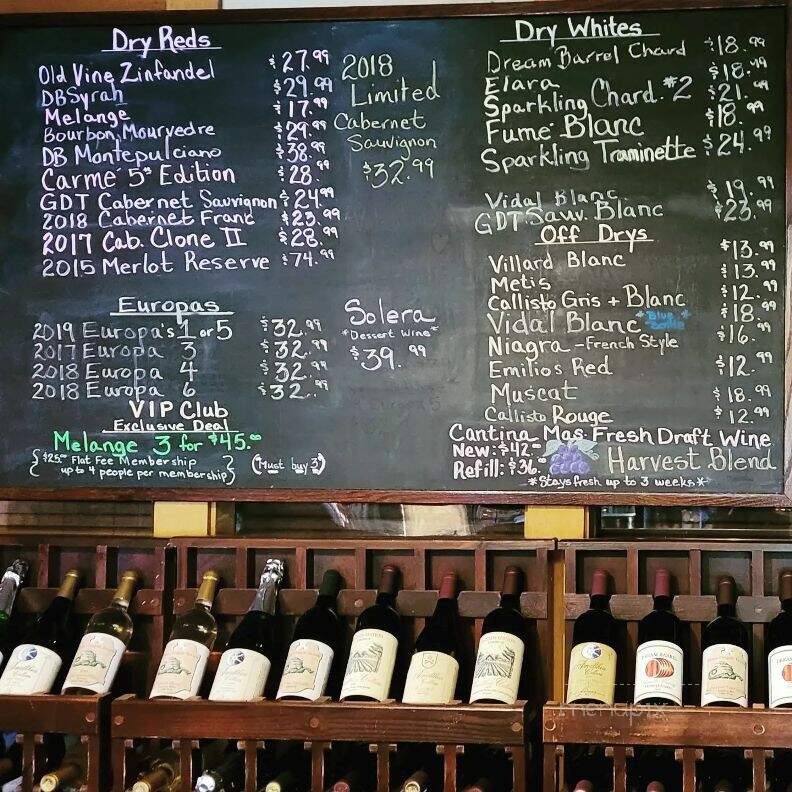 Dry Reds
Old Vine Zinfandel $27.99
DB Syrah $29.99
Melange $17.99
Bourbon Mourvedre $29.99
DB Montepulciano $38.99
Carme 5th Edition $28.
GDT Cabernet Sauvignon $24.99
2018 Cabernet Franc $23.99
2017 Cab. Clone II $28.99
2015 Merlot Reserve $74.99
2018
Limited
Cabernet
Sauvignon
$32.99
Europas
2019 Europa's 1 or 5 $32.99
2017 Europa 3 $32.99
2018 Europa 4 $32.99
2018 Europa 6 $32.99
Solera
*Dessert Wine*
$39.99
VIP Club
Exclusive Deal
Melange 3 for $45.00
{$25.00 Flat Fee Membership
up to 4 people per membership}
(Must buy 3)
Dry Whites
Dream Barrel Chard $18.99
Elara $18.99
Sparkling Chard. #2 $21.99
Fume Blanc $18.99
Sparkling Traminette $24.99
Vidal Blanc $19.99
GDT Sauv. Blanc $23.99
Off Drys
Villard Blanc $13.99
Metis $13.99
Callisto Gris + Blanc $12.99
Vidal Blanc *Blue Bottle* $18.99
Niagra - French Style $16.99
Emilios Red $12.99
Muscat $18.99
Callisto Rouge $12.99
Cantina Mas Fresh Draft Wine
New: $42.00
Refill: $36.00
Harvest Blend
*Stays fresh up to 3 weeks*
menupix